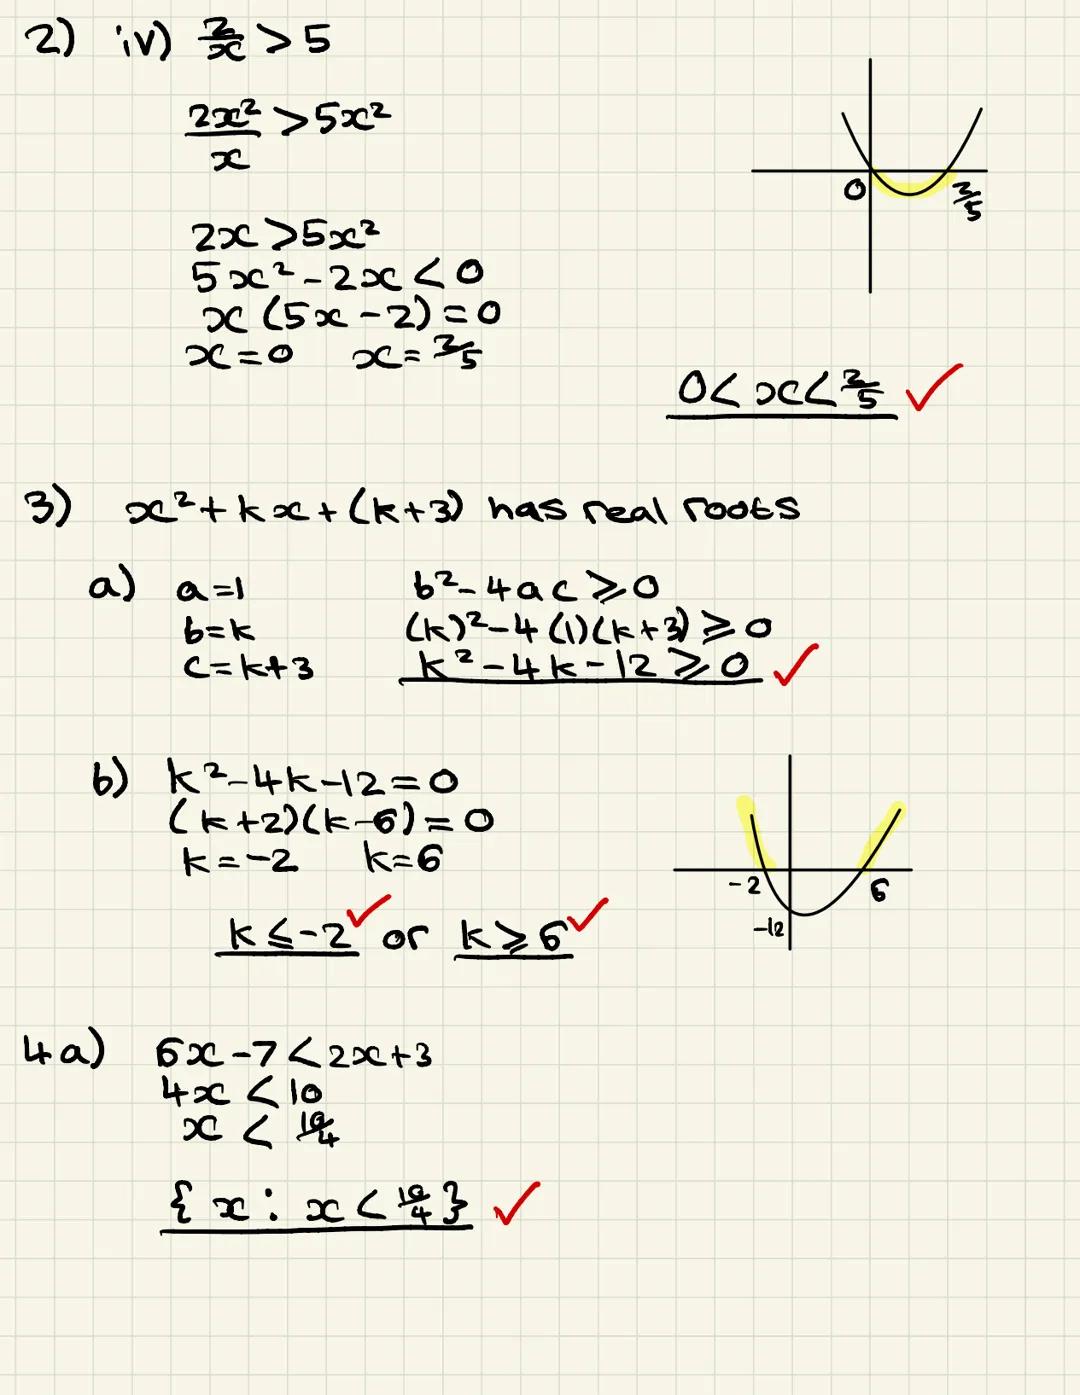 2) iv) 2/x > 5
2x²/x > 5x²
2x > 5x²
5x² - 2x < 0
x (5x - 2) = 0
x = 0 x = 2/5
0 2/5
0 < x < 2/5 ✓
3) x² + kx + (k+3) has real roots
a) a = 1 b² - 4ac ⩾ 0
b = k (k)² - 4(1)(k+3) ⩾ 0
c = k+3 k² - 4k - 12 ⩾ 0 ✓
b) k² - 4k - 12 = 0
(k+2)(k-6) = 0
k = -2 k = 6
-2 6
-12
k ⩽ -2 ✓ or k ⩾ 6 ✓
4a) 6x - 7 < 2x + 3
4x < 10
x < 10/4
{ x : x < 10/4 } ✓